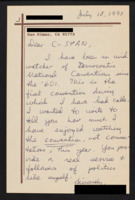 July 18, 1992
San Dimas, CA 91773
Dear C-SPAN,
I have been an avid
watcher of Democratic
National Conventions since
the '60s. This is the
first convention during
which I have had cable.
I wanted to write to
tell you how much I
have enjoyed watching
the convention, not comm-
entators, this year. You pro-
vide a real service to
followers of politics
like myself.
Sincerely,